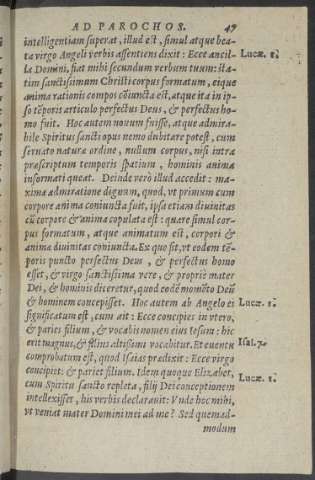 AD PAROCHOS. 47
intelligentiam superat, illud est, simul atque bea-
ta virgo Angeli verbis assentiens dixit: Ecce ancil- Lucæ. 1.
la Domini, fiat mihi secundum verbum tuum: sta-
tim sanctissimum Christi corpus formatum, eique
anima rationis compos coniuncta est, atque ita in ip-
so tēporis articulo perfectus Deus, & perfectus ho-
mo fuit. Hoc autem novum fuisse, atque admira-
bile Spiritus sancti opus nemo dubitare potest, cum
servato natura ordine, nullum corpus, nisi intra
præscriptum temporis spatium, hominis anima
informari queat. Deinde verò illud accedit: ma-
xima admiratione dignum, quod, vt primum cum
corpore anima coniuncta fuit, ipsa etiam diuinitas
cū corpore & anima copulata est: quare simul cor-
pus formatum, atque animatum est, corpori &
anima diuinitas coniuncta. Ex quo fit, vt eodem tē-
poris puncto perfectus Deus, & perfectus homo
esset, & virgo sanctissima vere, & propriè mater
Dei, & hominis diceretur, quod eodē momēto Deū
& hominem concepisset. Hoc autem ab Angelo ei Lucæ. 1.
significatum est, cum ait: Ecce concipies in vtero,
& paries filium, & vocabis nomen eius Iesum: hic
erit magnus, & filius altissimi vocabitur. Et euentu Isai. 7.
comprobatum est, quod Isaias prædixit: Ecce virgo
concipiet: & pariet filium. Idem quoque Elizabet, Lucæ. 1.
cum Spiritu sancto repleta, filij Dei conceptionem
intellexisset, his verbis declarauit: Vnde hoc mihi,
vt veniat mater Domini mei ad me? Sed quemad-
modum